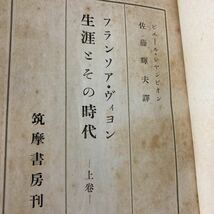 ピエール・シャンピオン
佐藤輝夫譯
フランソア・ヴィヨン
生涯とその時代
上卷
筑摩書房刊